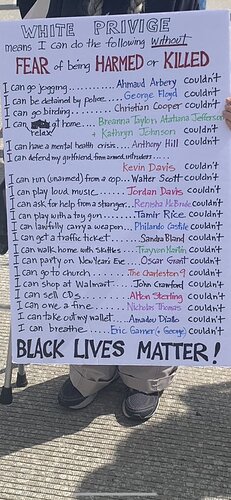 WHITE PRIVIGE
means I can do the following without
FEAR of being HARMED or KILLED
I can go jogging.......Ahmaud Arbery couldn't
I can be detained by police....George Floyd couldn't
I can go birding......Christian Cooper couldn't
I can relax at home...Breanna Taylor, Atatiana Jefferson
+ Kathryn Johnson couldn't
I can have a mental health crisis...Anthony Hill couldn't
I can defend my girlfriend from armed intruders...
Kevin Davis couldn't
I can run (unarmed) from a cop...Walter Scott couldn't
I can play loud music......Jordan Davis couldn't
I can ask for help from a stranger...Renisha McBride couldn't
I can play with a toy gun......Tamir Rice couldn't
I can lawfully carry a weapon...Philando Castile couldn't
I can get a traffic ticket...Sandra Bland couldn't
I can walk home with skittles...Trayvon Martin couldn't
I can party on New Years Eve...Oscar Grant couldn't
I can go to church......The Charleston 9 couldn't
I can shop at Walmart....John Crawford couldn't
I can sell CDs.......Alton Sterling couldn't
I can owe a fine....Nicholas Thomas couldn't
I can take out my wallet....Amadou Diallo couldn't
I can breathe.....Eric Garner (+ George) couldn't
BLACK LIVES MATTER!